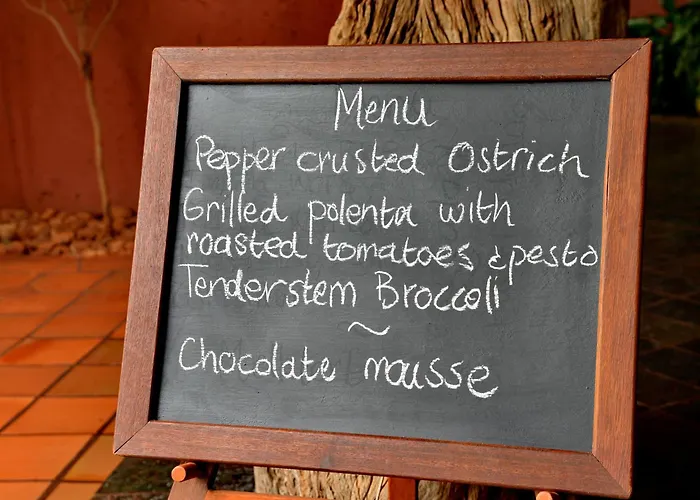 Menu
Pepper crusted Ostrich
Grilled polenta with
roasted tomatoes & pesto
Tenderstem Broccoli
~
Chocolate mousse